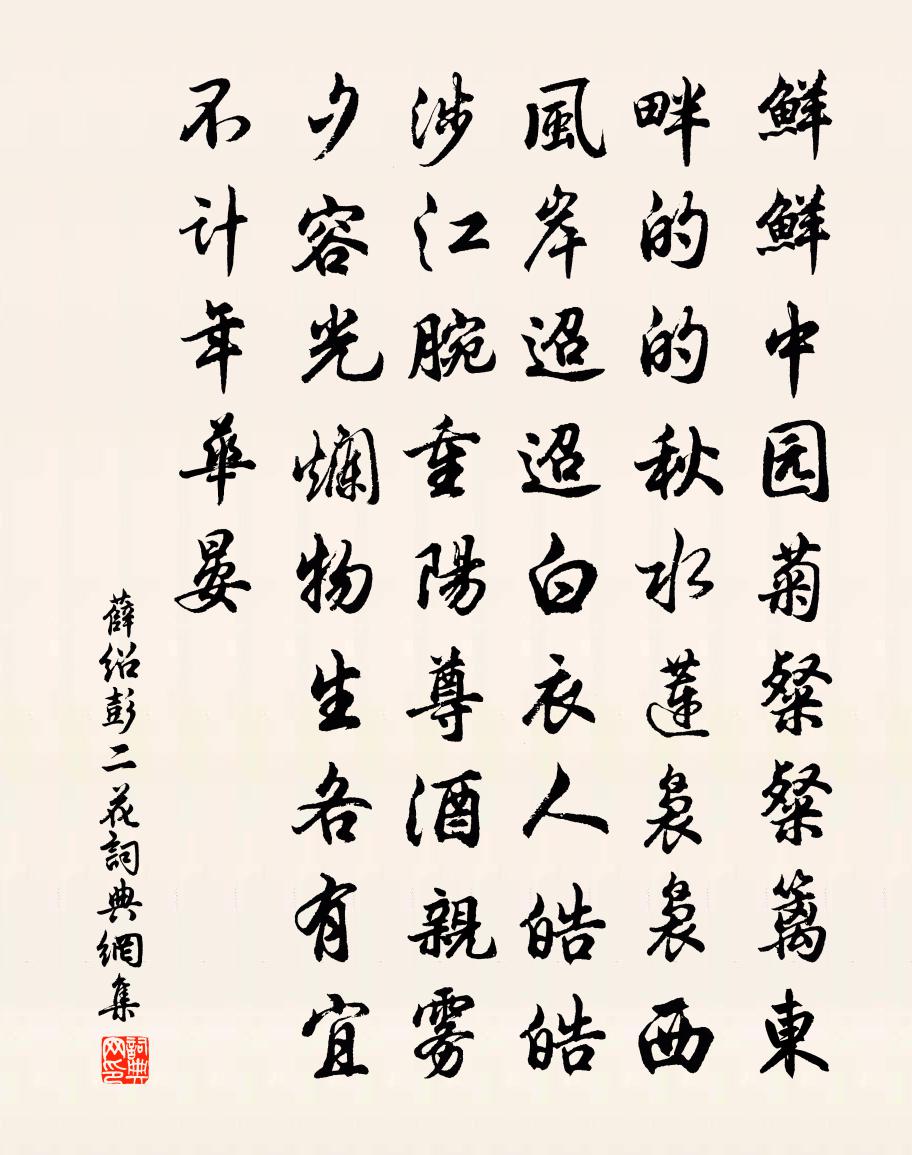 鮮鮮中园菊粲粲篱東
畔的的秋水蓮袅袅西
風岸迢迢白衣人皓皓
涉江腕重陽尊酒親雾
夕容光爛物生各有宜
不计年華晏
薛绍彭二花詞典網集
詞典网印